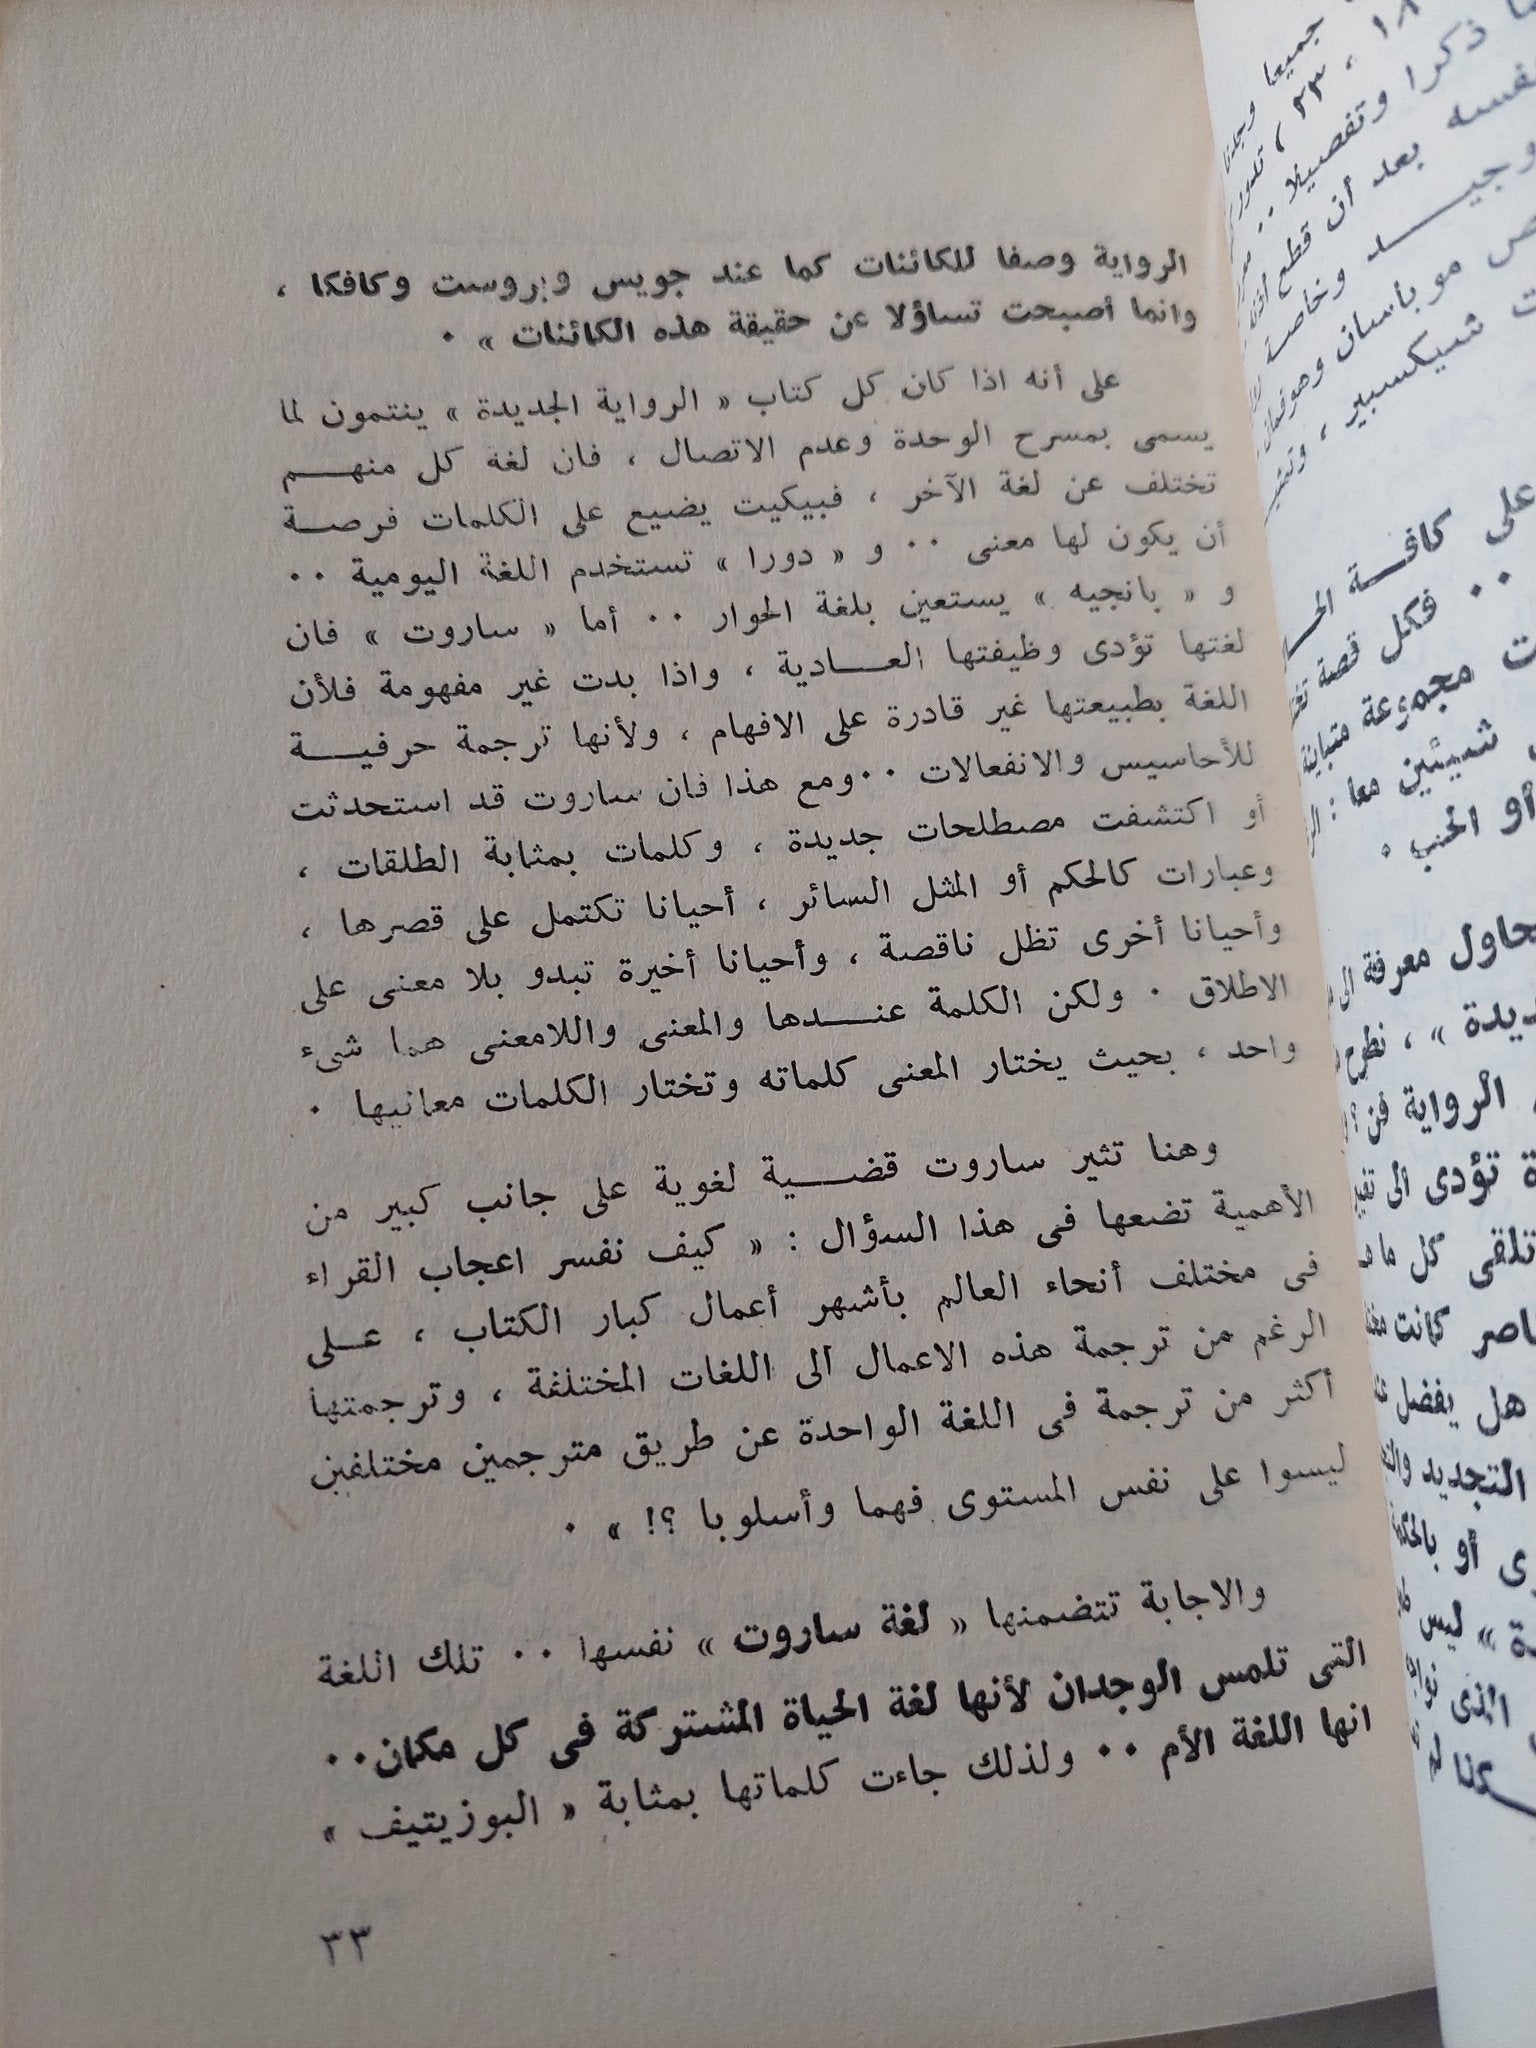 الرواية وصفا للكائنات كما عند جويس وبروست وكافكا ،
وانما أصبحت تساؤلا عن حقيقة هذه الكائنات » ٠
على أنه اذا كان كل كتاب « الرواية الجديدة » ينتمون لما
يسمى بمسرح الوحدة وعدم الاتصال ، فان لغة كل منهـــم
تختلف عن لغة الآخر ، فبيكيت يضيع على الكلمات فرصـــة
أن يكون لها معنى ٠٠ و « دورا » تستخدم اللغة اليومية ٠٠
و « بانجيه » يستعين بلغة الحوار ٠٠ أما « ساروت » فان
لغتها تؤدى وظيفتها العـــادية ، واذا بدت غير مفهومة فلأن
اللغة بطبيعتها غير قادرة على الافهام ، ولأنها ترجمة حرفيـــة
للأحاسيس والانفعالات ٠٠ ومع هذا فان ساروت قد استحدثت
أو اكتشفت مصطلحات جديدة ، وكلمات بمثابة الطلقات ،
وعبارات كالحكم أو المثل السائر ، أحيانا تكتمل على قصرها ،
وأحيانا أخرى تظل ناقصة ، وأحيانا أخيرة تبدو بلا معنى على
الاطلاق ٠ ولكن الكلمة عنـــدها والمعنى واللامعنى هما شىء
واحد ، بحيث يختار المعنى كلماته وتختار الكلمات معانيها ٠
وهنا تثير ساروت قضـــية لغوية على جانب كبير من
الأهمية تضعها فى هذا السؤال : « كيف نفسر اعجاب القراء
فى مختلف أنحاء العالم بأشهر أعمال كبار الكتاب ، علـــى
الرغم من ترجمة هذه الاعمال الى اللغات المختلفة ، وترجمتها
أكثر من ترجمة فى اللغة الواحدة عن طريق مترجمين مختلفين
ليسوا على نفس المستوى فهما وأسلوبا ؟! » ٠
والاجابة تتضمنها « لغة ساروت » نفسها ٠٠ تلك اللغة
التى تلمس الوجدان لأنها لغة الحياة المشتركة فى كل مكان٠٠
انها اللغة الأم ٠٠ ولذلك جاءت كلماتها بمثابة « البوزيتيف »
٣٣
جميعا
ذكرا وتفصيلا ٠٠
نفسه بعد أن قطع
وخاصة
موباسان وهوفمان
شيكسبير ،
على كافـــة
٠٠ فكل قصة
مجموعة متباينة
شيئين معا :
أو الحب ٠
معرفة الى
» ، نطرح
الرواية فن ؟
تؤدى الى
تلقى كل ما
كانت
هل يفضل
التجديد
أو
» ليس
الذى